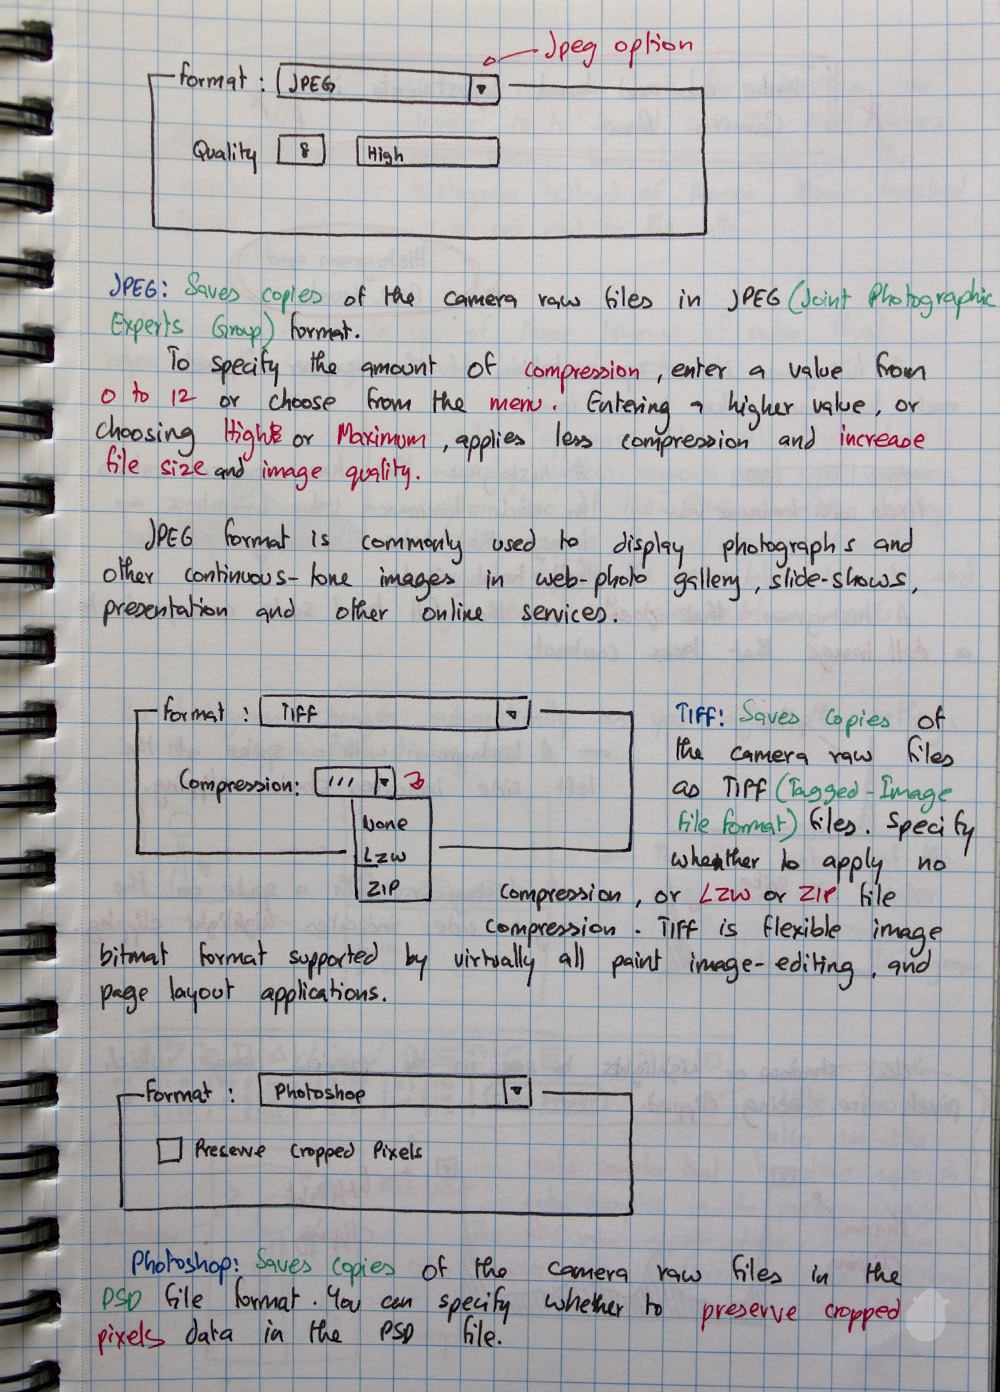 Jpeg option
Format : JPEG
Quality 8 High
JPEG: Saves copies of the camera raw files in JPEG (Joint Photographic
Experts Group) format.
To specify the amount of compression, enter a value from
0 to 12 or choose from the menu. Entering a higher value, or
choosing High or Maximum, applies less compression and increase
file size and image quality.
JPEG format is commonly used to display photographs and
other continuous-tone images in web-photo gallery, slide-shows,
presentation and other online services.
Format : TIFF
Compression:
None
LZW
ZIP
TIFF: Saves copies of
the camera raw files
as TIFF (Tagged-Image
file format) files. Specify
whether to apply no
compression, or LZW or ZIP file
compression. TIFF is flexible image
bitmat format supported by virtually all paint image-editing, and
page layout applications.
Format : Photoshop
Preserve Cropped Pixels
Photoshop: Saves copies of the camera raw files in the
PSD file format. You can specify whether to preserve cropped
pixels data in the PSD file.